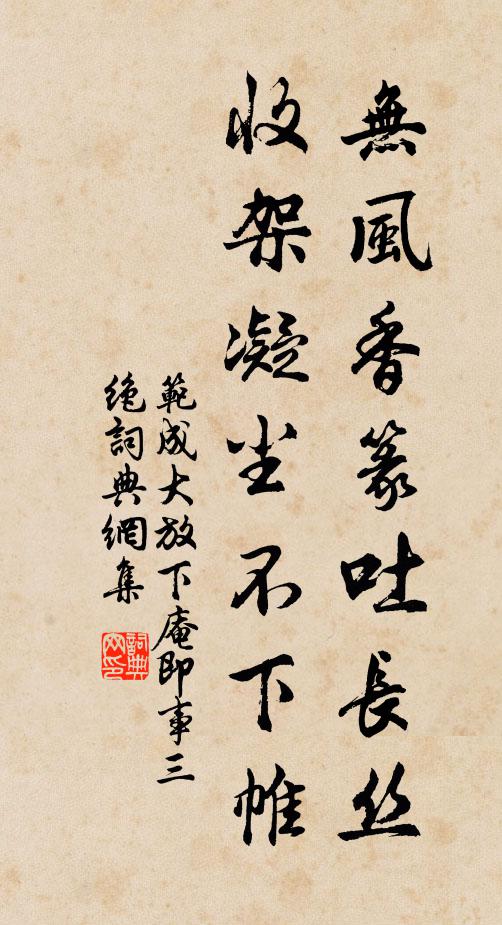 無風香篆吐長丝
收架凝尘不下帷
範成大放下庵即事三
绝詞典網集
詞典网印